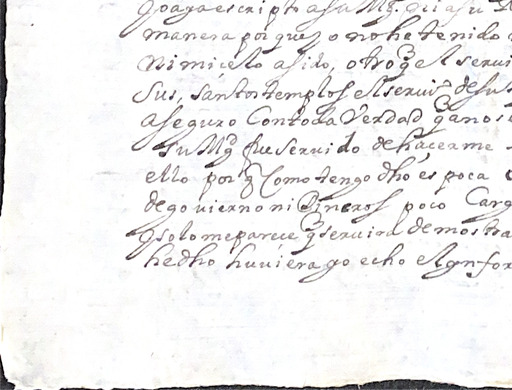 escripto a su Mg.
manera porque yo no he tenido
Ni mi celo a sido, otro q̃ el servi
Sus, santos templos el servi.º de su
aseguro Con toda Verdad q̃ a nos
su Mgd fue servido de hacerme
ello porq̃ Como tengo dho es poca
de govierno ni Dineros poco Carg
q solo me parece q̃ servira demostra
he dho huviera yo echo